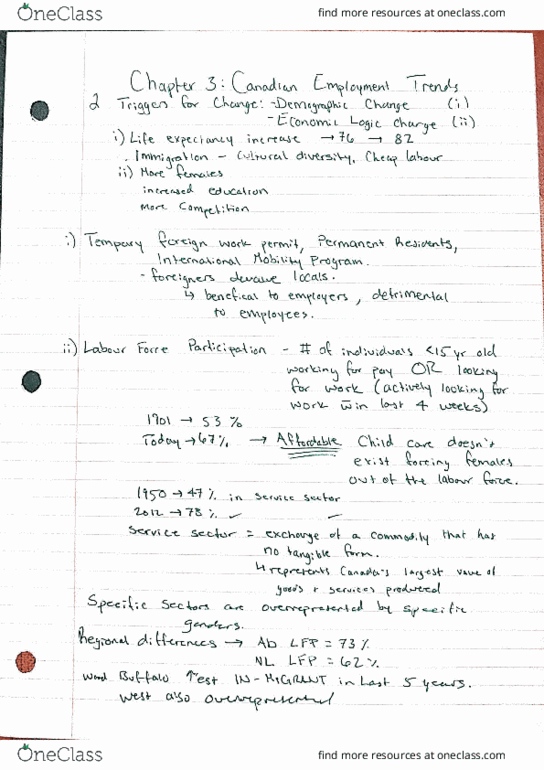 OneClass
find more resources at oneclass.com
Chapter 3: Canadian Employment Trends
2 Triggers for Change: -Demographic Change (i)
-Economic Logic Change (ii)
i) Life expectancy increase → 76 → 82
. Immigration - Cultural diversity, Cheap labour
ii) More females
increased education
More Competition
i) Tempary foreign work permit, Permanent Residents,
International Mobility Program.
- foreigners devalue locals.
↳ benefical to employers, detrimental
to employees.
ii) Labour Force Participation - # of individuals <15 yr old
working for pay OR looking
for work (actively looking for
work w̄in last 4 weeks)
1901 → 53 %
Today → 67% → Affordable Child care doesn't
exist forcing females
out of the labour force.
1950 → 47 % in service sector
2012 → 78 % ✓
Service sector = exchange of a commodity that has
no tangible form.
↳ represents Canada's largest value of
goods + services produced
Specific Sectors are overrepresented by specific
genders.
Regional differences → Ab LFP = 73 %
NL LFP = 62 %
Wood Buffalo ↑est IN-MIGRANT in Last 5 years.
West also overrepresented
OneClass
find more resources at oneclass.com